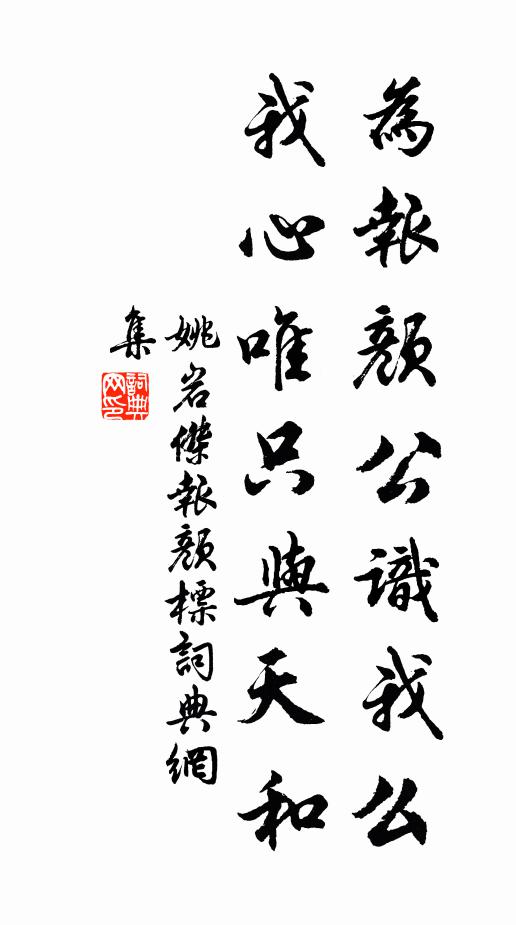 為報顏公識我么
我心唯只與天和
姚岩傑報顏標詞典網
集
詞典网印